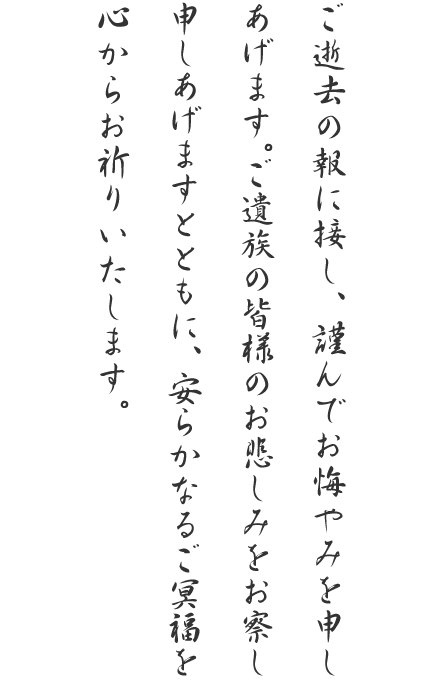 ご逝去の報に接し、謹んでお悔やみを申し
あげます。ご遺族の皆様のお悲しみをお察し
申しあげますとともに、安らかなるご冥福を
心からお祈りいたします。